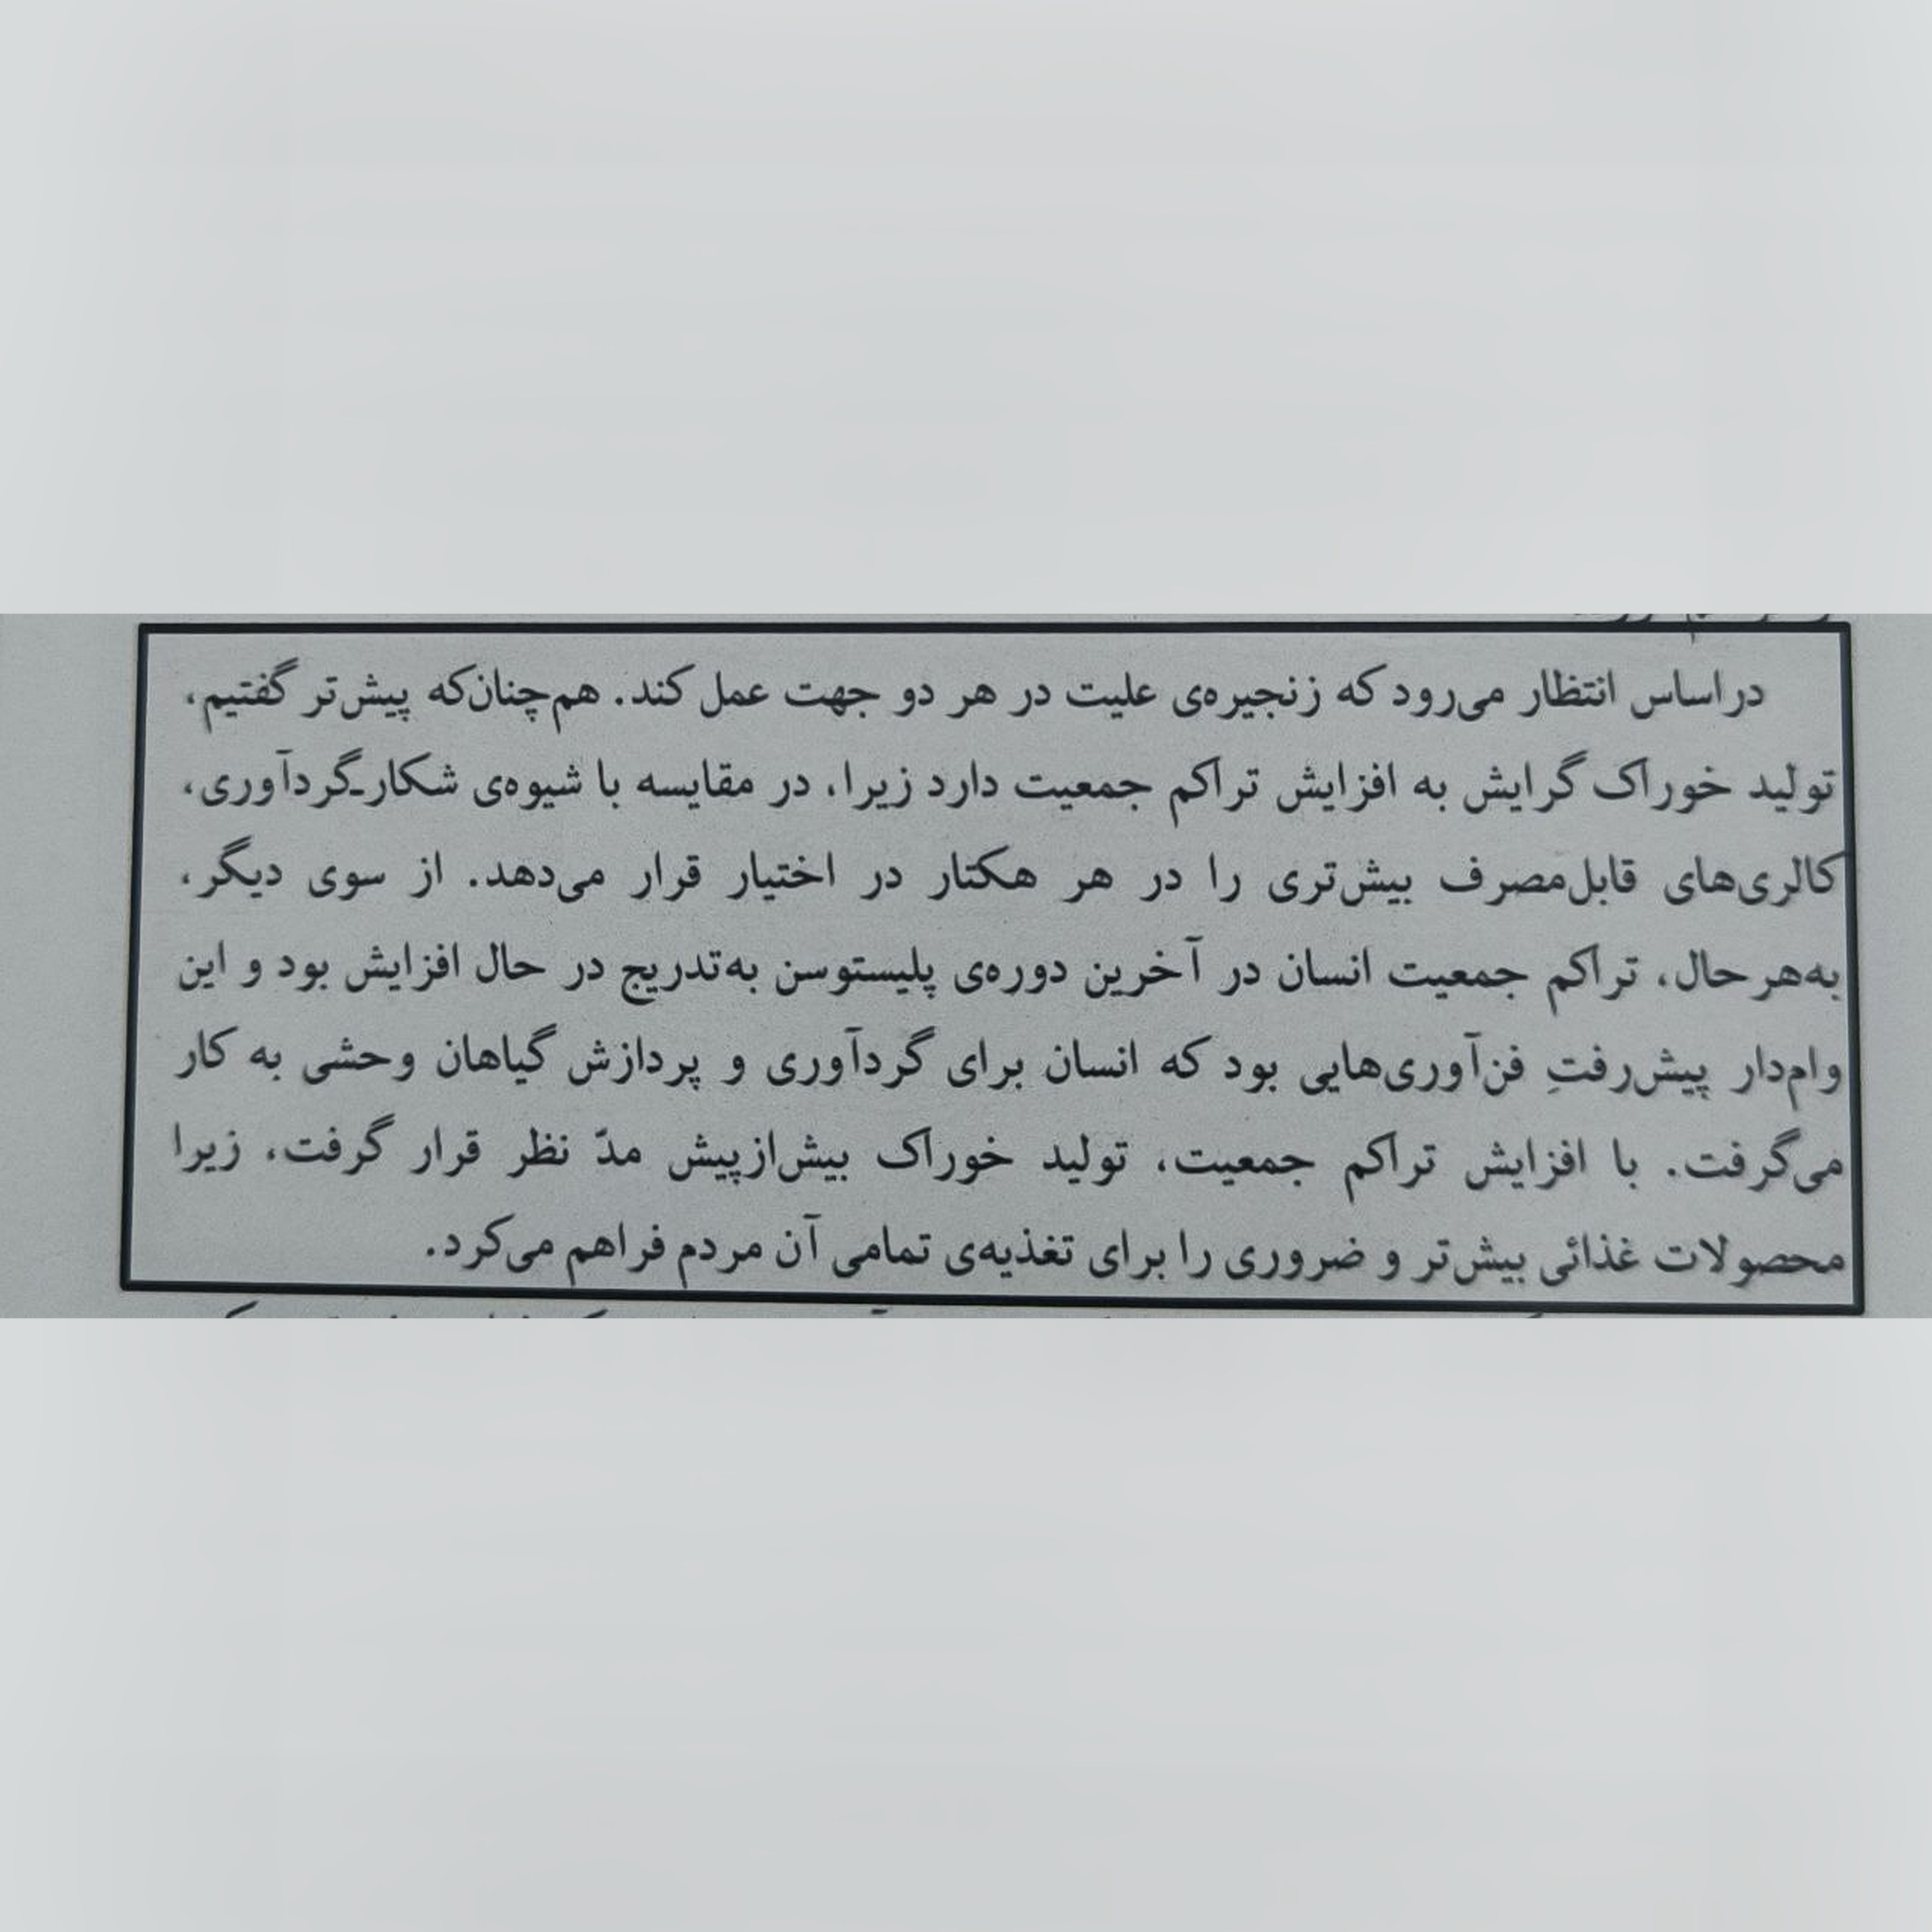 دراساس انتظار می‌رود که زنجیره‌ی علیت در هر دو جهت عمل کند. هم‌چنان‌که پیش‌تر گفتیم،
تولید خوراک گرایش به افزایش تراکم جمعیت دارد زیرا، در مقایسه با شیوه‌ی شکارـگردآوری،
کالری‌های قابل‌مصرف بیش‌تری را در هر هکتار در اختیار قرار می‌دهد. از سوی دیگر،
به‌هر حال، تراکم جمعیت انسان در آخرین دوره‌ی پلیستوسن به‌تدریج در حال افزایش بود و این
وام‌دار پیش‌رفتِ فن‌آوری‌هایی بود که انسان برای گردآوری و پردازش گیاهان وحشی به کار
می‌گرفت. با افزایش تراکم جمعیت، تولید خوراک بیش‌ازپیش مدّ نظر قرار گرفت، زیرا
محصولات غذائی بیش‌تر و ضروری را برای تغذیه‌ی تمامی آن مردم فراهم می‌کرد.